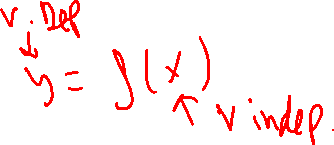 v. Dep
y = f(x)
v indep.